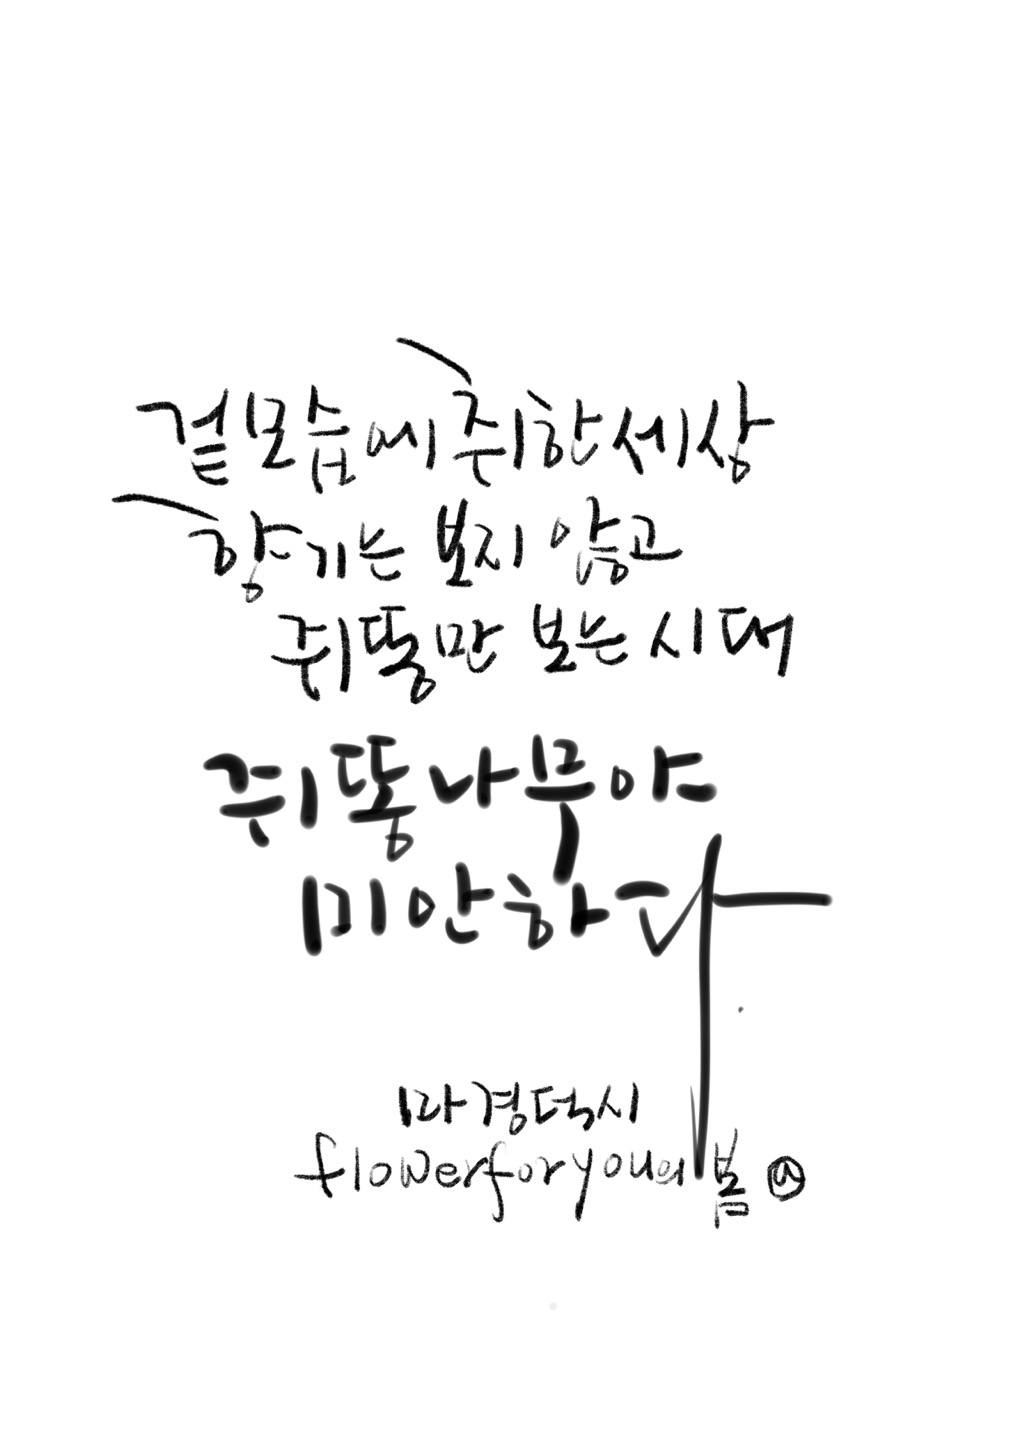 겉모습에 취한 세상
향기는 보지 않고
쥐똥만 보는 시대
쥐똥나무야
미안하다
마경덕 시
flowerforyou의 봄